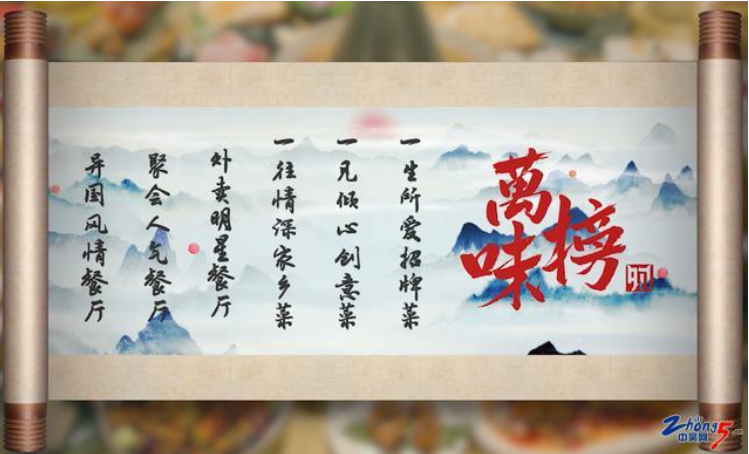 萬味榜
一生所爱招牌菜
一見倾心创意菜
一往情深家乡菜
外卖明星餐厅
聚会人气餐厅
异国风情餐厅
Zhong5
中吴网